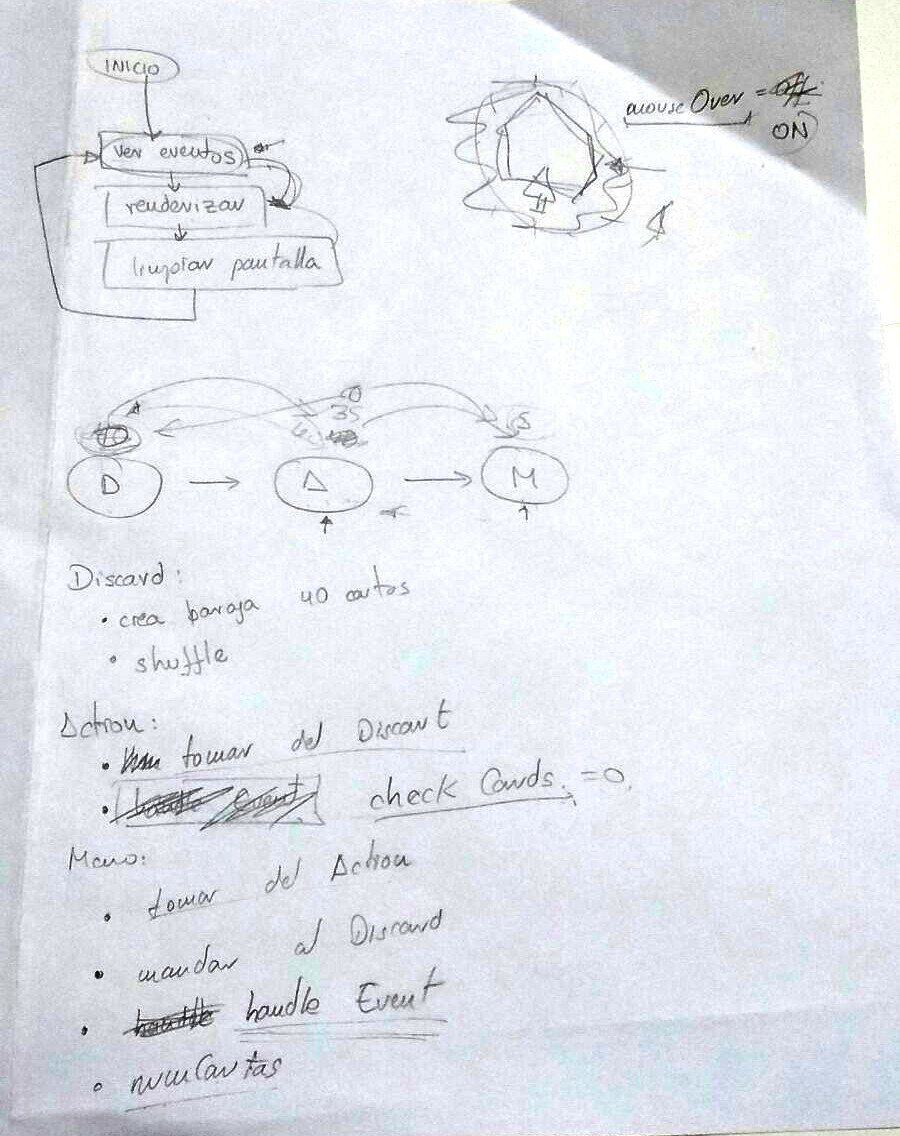 INICIO
mouse Over = off
ON
ver eventos
renderizar
limpiar pantalla
0
35
5
40
D
A
M
Discard:
• crea baraja 40 cartas
• shuffle
Action:
• tomar del Discart
• Event check Cards = 0
Mano:
• tomar del Action
• mandar al Discard
• handle handle Event
• numCartas